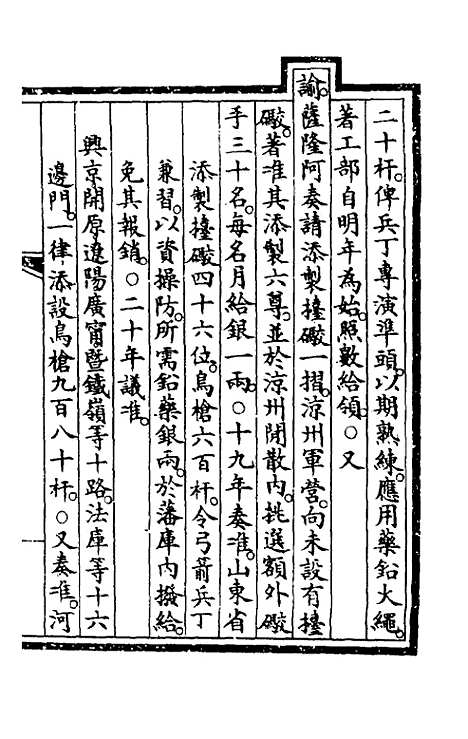 二十杆。俾兵丁專演準頭。以期熟練。應用藥鉛火繩。
著工部自明年為始。照數給領。○又
諭。薩隆阿奏請添製擡礮一摺。涼州軍營。向未設有擡
礮。著准其添製六尊。並於涼州閒散內。挑選額外礮
手三十名。每名月給銀一兩。○十九年奏准。山東省
添製擡礮四十六位。鳥槍六百杆。令弓箭兵丁
兼習。以資操防。所需鉛藥銀兩。於藩庫內撥給。
免其報銷。○二十年議准。
興京。開原。遼陽。廣甯。暨鐵嶺等十路。法庫等十六
邊門。一律添設鳥槍九百八十杆。○又奏准。河